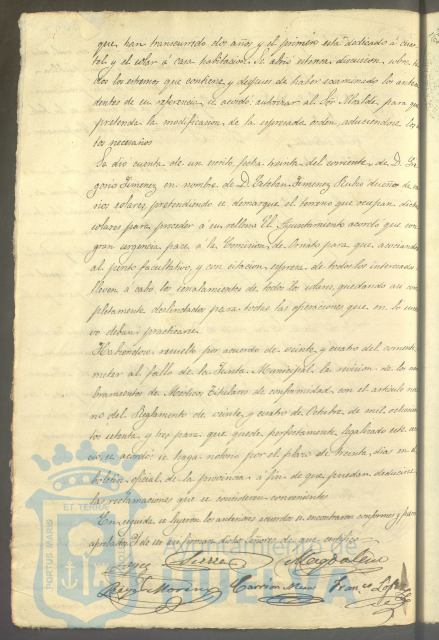 que han transcurrido dos años y el primero esta dedicado á cuar-
tel y el solar á casa habitacion. Se abrio estensa discusion sobre to
dos los estremos que contiene, y despues de haber examinado los antece
dentes de su referencia, se acordo, autorizar al Sor Alcalde para que
pretenda la modificacion de la espresada órden, aduciendose los
tos necesarios
Se dio cuenta de un escrito, fecha treinta del corriente, de D. Gre
gorio Jimenez en nombre de D. Esteban Jimenez Rubio dueños de va
rios solares, pretendiendo se demarque el terreno que ocupan dichos
solares para proceder á su relleno. El Ayuntamiento acordó que con
gran urgencia pase á la Comision de Ornato para que asociandose
al perito facultativo, y con citacion espresa de todos los interesados
lleven á cabo los señalamientos de todos los solares, quedando asi com
pletamente deslindados para todas las operaciones que en lo sucesi
vo deban practicarse
Habiendose resuelto por acuerdo de veinte y cuatro del corriente
meter al fallo de la Junta Municipal la revision de los nom
bramientos de Medicos Titulares de conformidad con el articulo no
no del Reglamento de veinte y cuatro de Octubre de mil ochocien
tos setenta y tres para que quede perfectamente legalizado este
se acordo: se haga notorio por el plazo de treinta dias en el
boletin oficial de la provincia á fin de que puedan deducirse
las reclamaciones que se consideren convenientes
En seguida se leyeron los anteriores acuerdos se encontraron conformes y fueron
aprobados y de ello firman dichos Señores de que certifico
Sierra Magdalena
Moreno Carrion Franco Lopez
PORTUS MARIS ET TERRAE
Ayuntamiento de
HUELVA